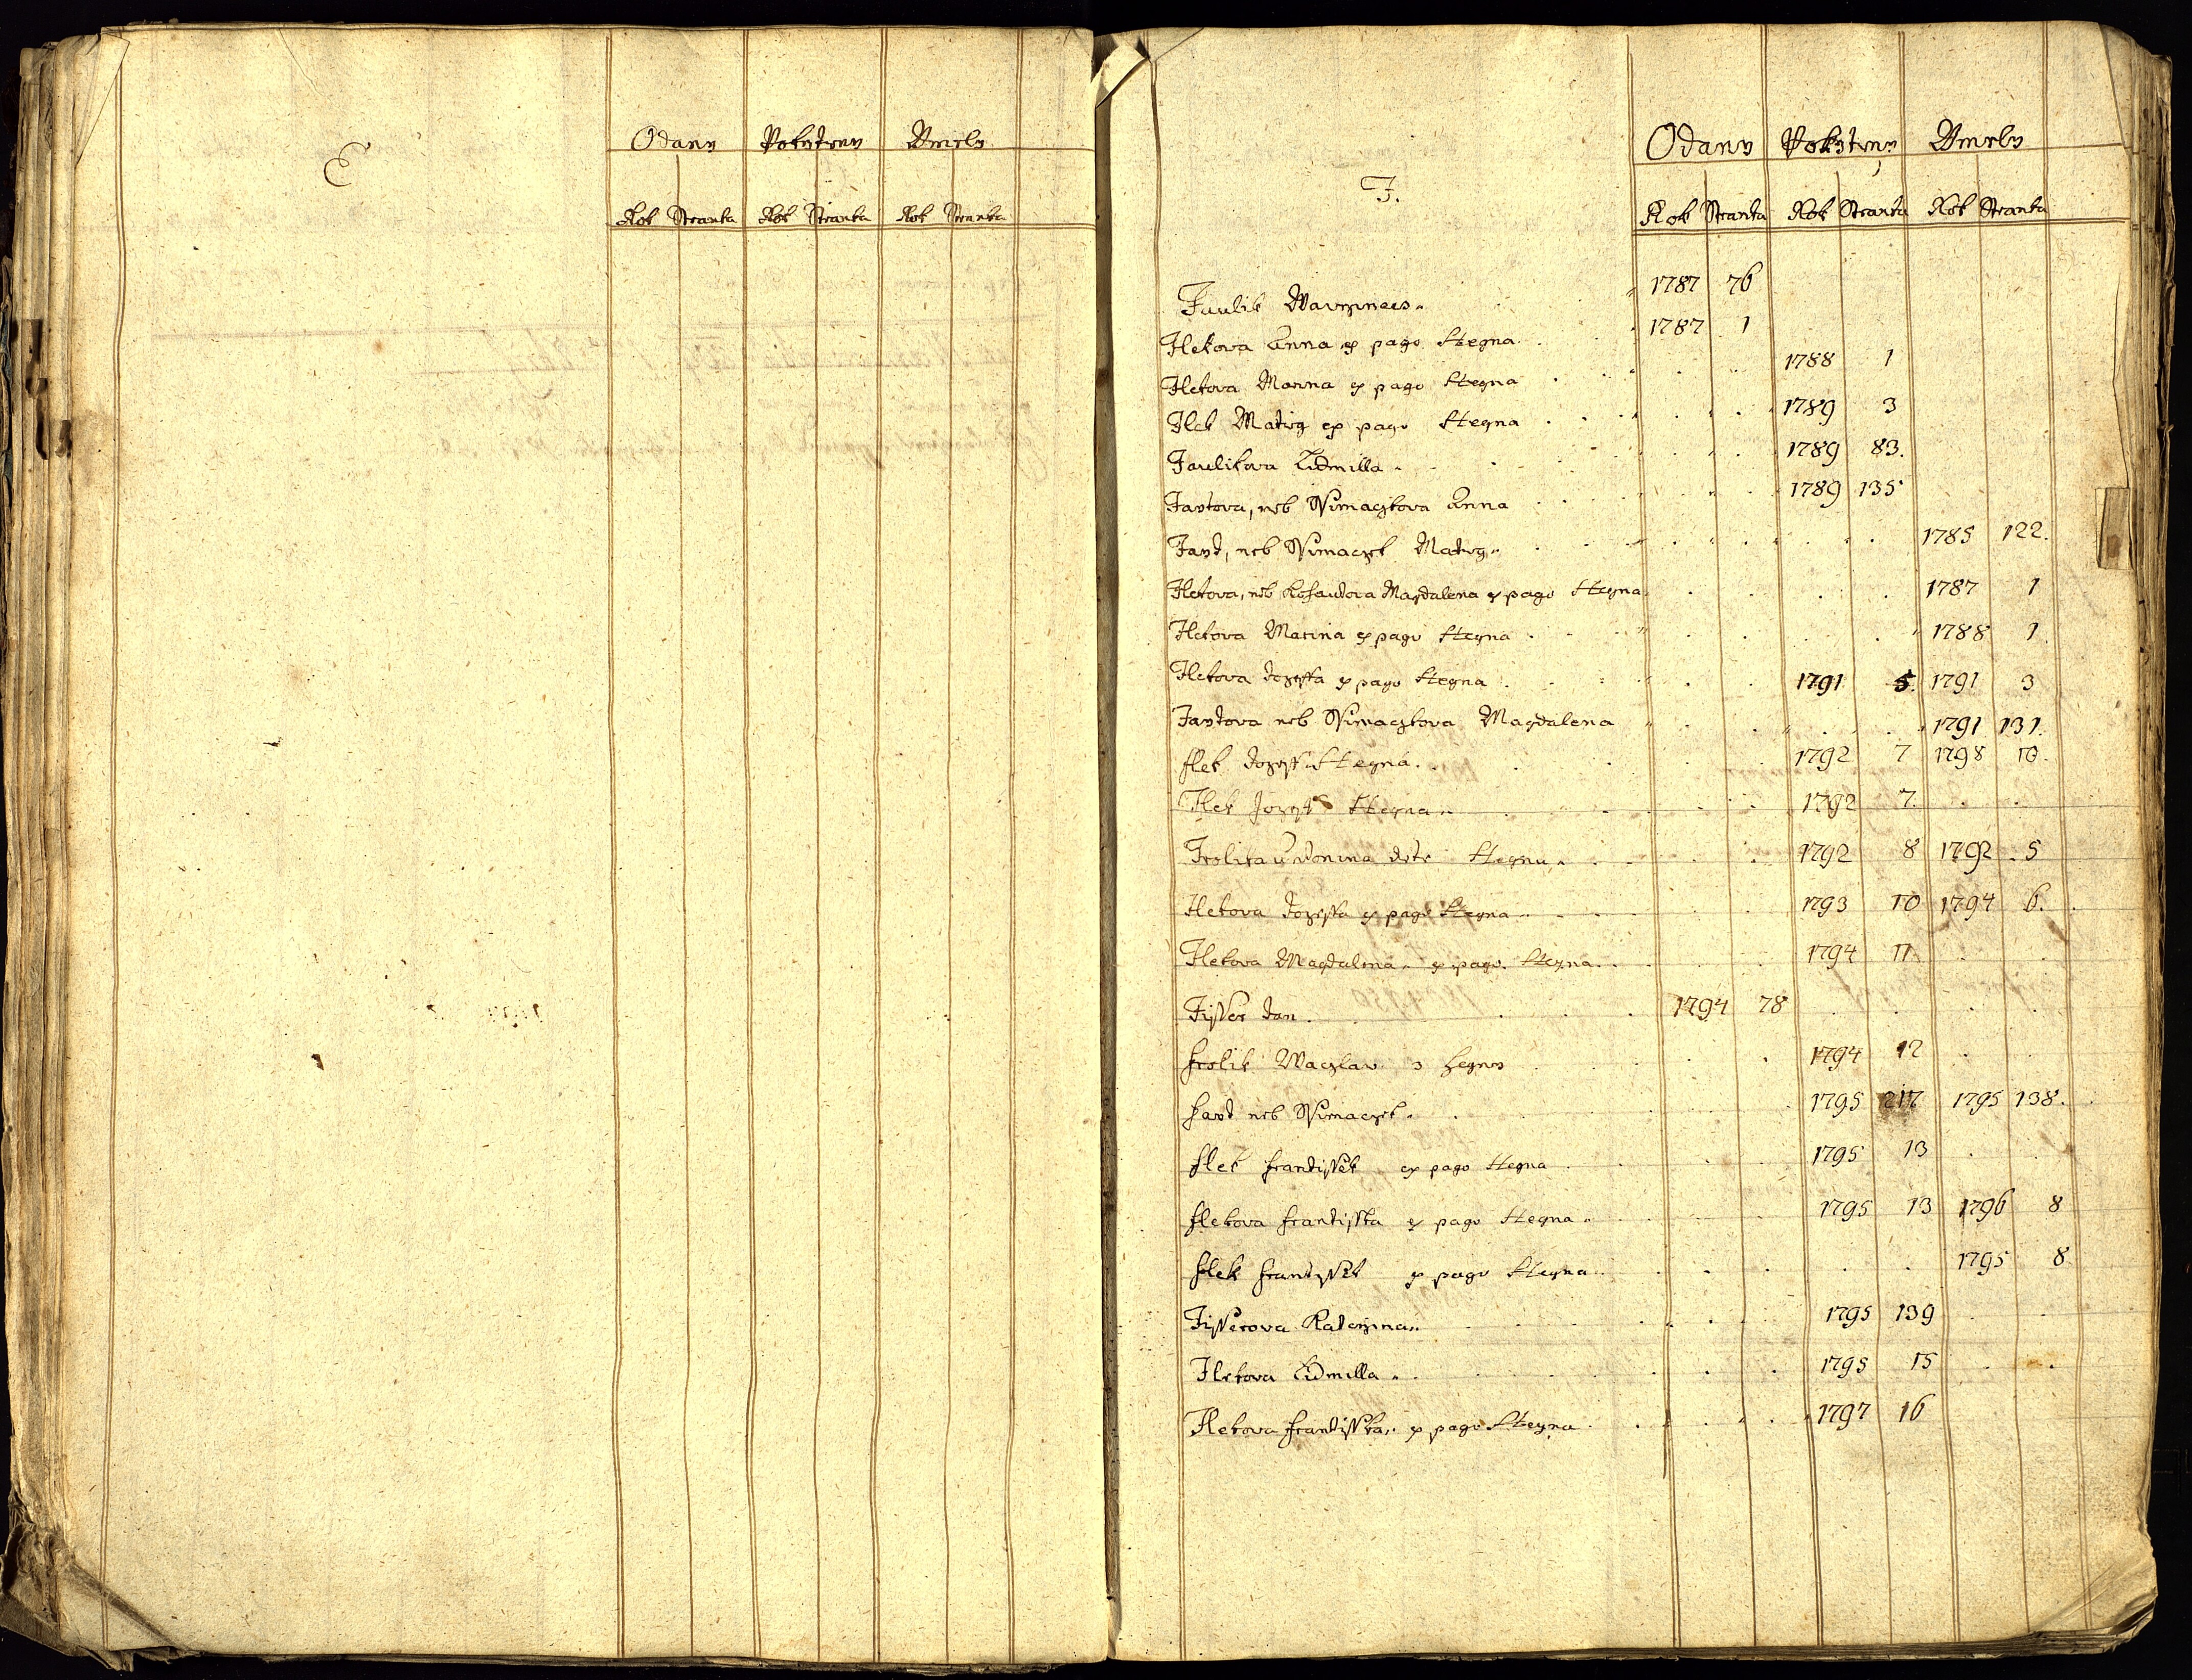 E
Odany Pokrteny Vmrely
Rok Stranka Rok Stranka Rok Stranka
F.
Odany Pokrteny Vmrely
Rok Stranka Rok Stranka Rok Stranka
Faulik Wawrzinecz 1787 76
Flekova Anna ex pago Stegna 1787 1
Flekova Marina ex pago Stegna 1788 1
Flek Matieg ex pago Stegna 1789 3
Faulikova Lidmilla 1789 83.
Fartova, neb Anna 1789 135
Fart, neb Matieg 1785 122.
Flekova, neb Magdalena ex pago Stegna 1787 1
Flekova Marina ex pago Stegna 1788 1.
Flekova Jozeffa ex pago Stegna 1791 5. 1791 3
Fartova neb Magdalena 1791 131.
flek Jozeff Stegna 1792 7 1798 10.
Flek Jozeff Stegna 1792 7.
Frolika Stegna 1792 8 1792 5
Flekova Jozeffa ex pago Stegna 1793 10 1794 6.
Flekova Magdalena ex pago Stegna 1794 11
Fisser Jan 1794 78
frolik Waczlav 1794 12
fart neb 1795 217 1795 138.
flek frantissek ex pago Stegna 1795 13
flekova frantisska ex pago Stegna 1795 13 1796 8
flek frantissek ex pago Stegna 1795 8
Fisserova Katerzina 1795 139
Flekova Lidmilla 1795 15
Flekova frantisska ex pago Stegna 1797 16